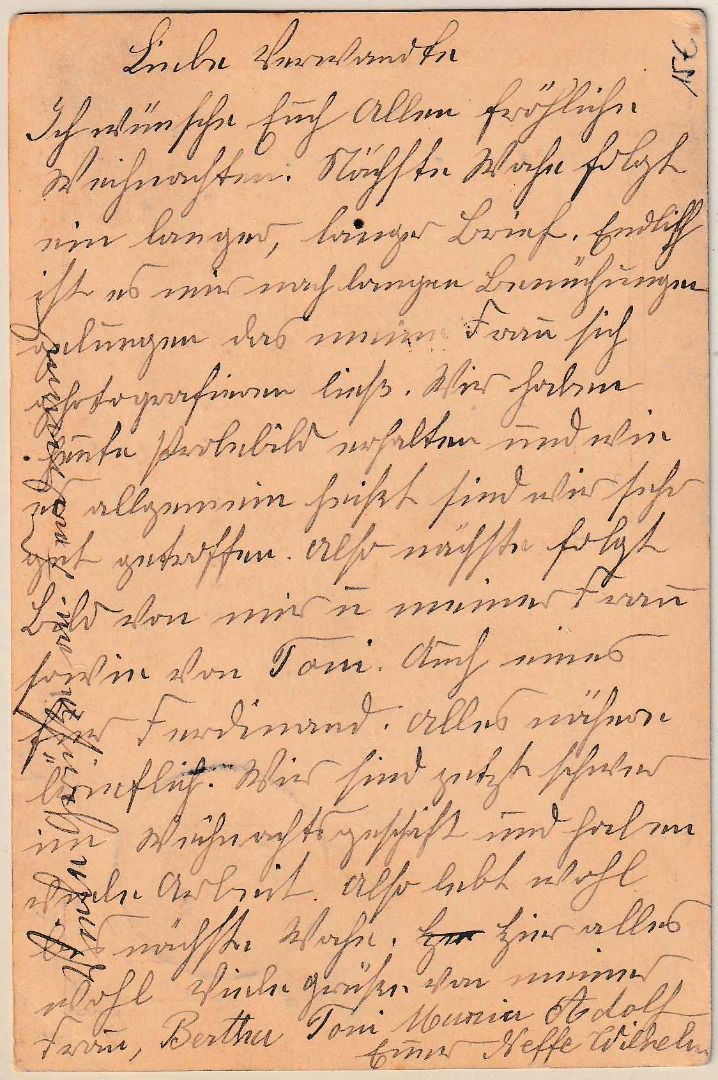 Liebe Verwandte
Ich wünsche Euch Allen fröhliche
Weihnachten. Nächste Woche folgt
ein langer, langer Brief. Endlich
ist es mir nach langen Bemühungen
gelungen das meine Frau sich
photografieren ließ. Wir haben
heute Probebild erhalten und wie
es allgemein heißt sind wir sehr
gut getroffen. Also nächste folgt
Bild von mir u meiner Frau
sowie von Toni. Auch eines
für Ferdinand. Alles nähere
brieflich. Wir sind jetzt schwer
im Weihnachtsgeschäft und haben
viele Arbeit. Also lebt wohl
bis nächste Woche. Hier alles
wohl Viele Grüße von meiner
Frau, Bertha Toni Adolf
Euer Neffe Wilhelm